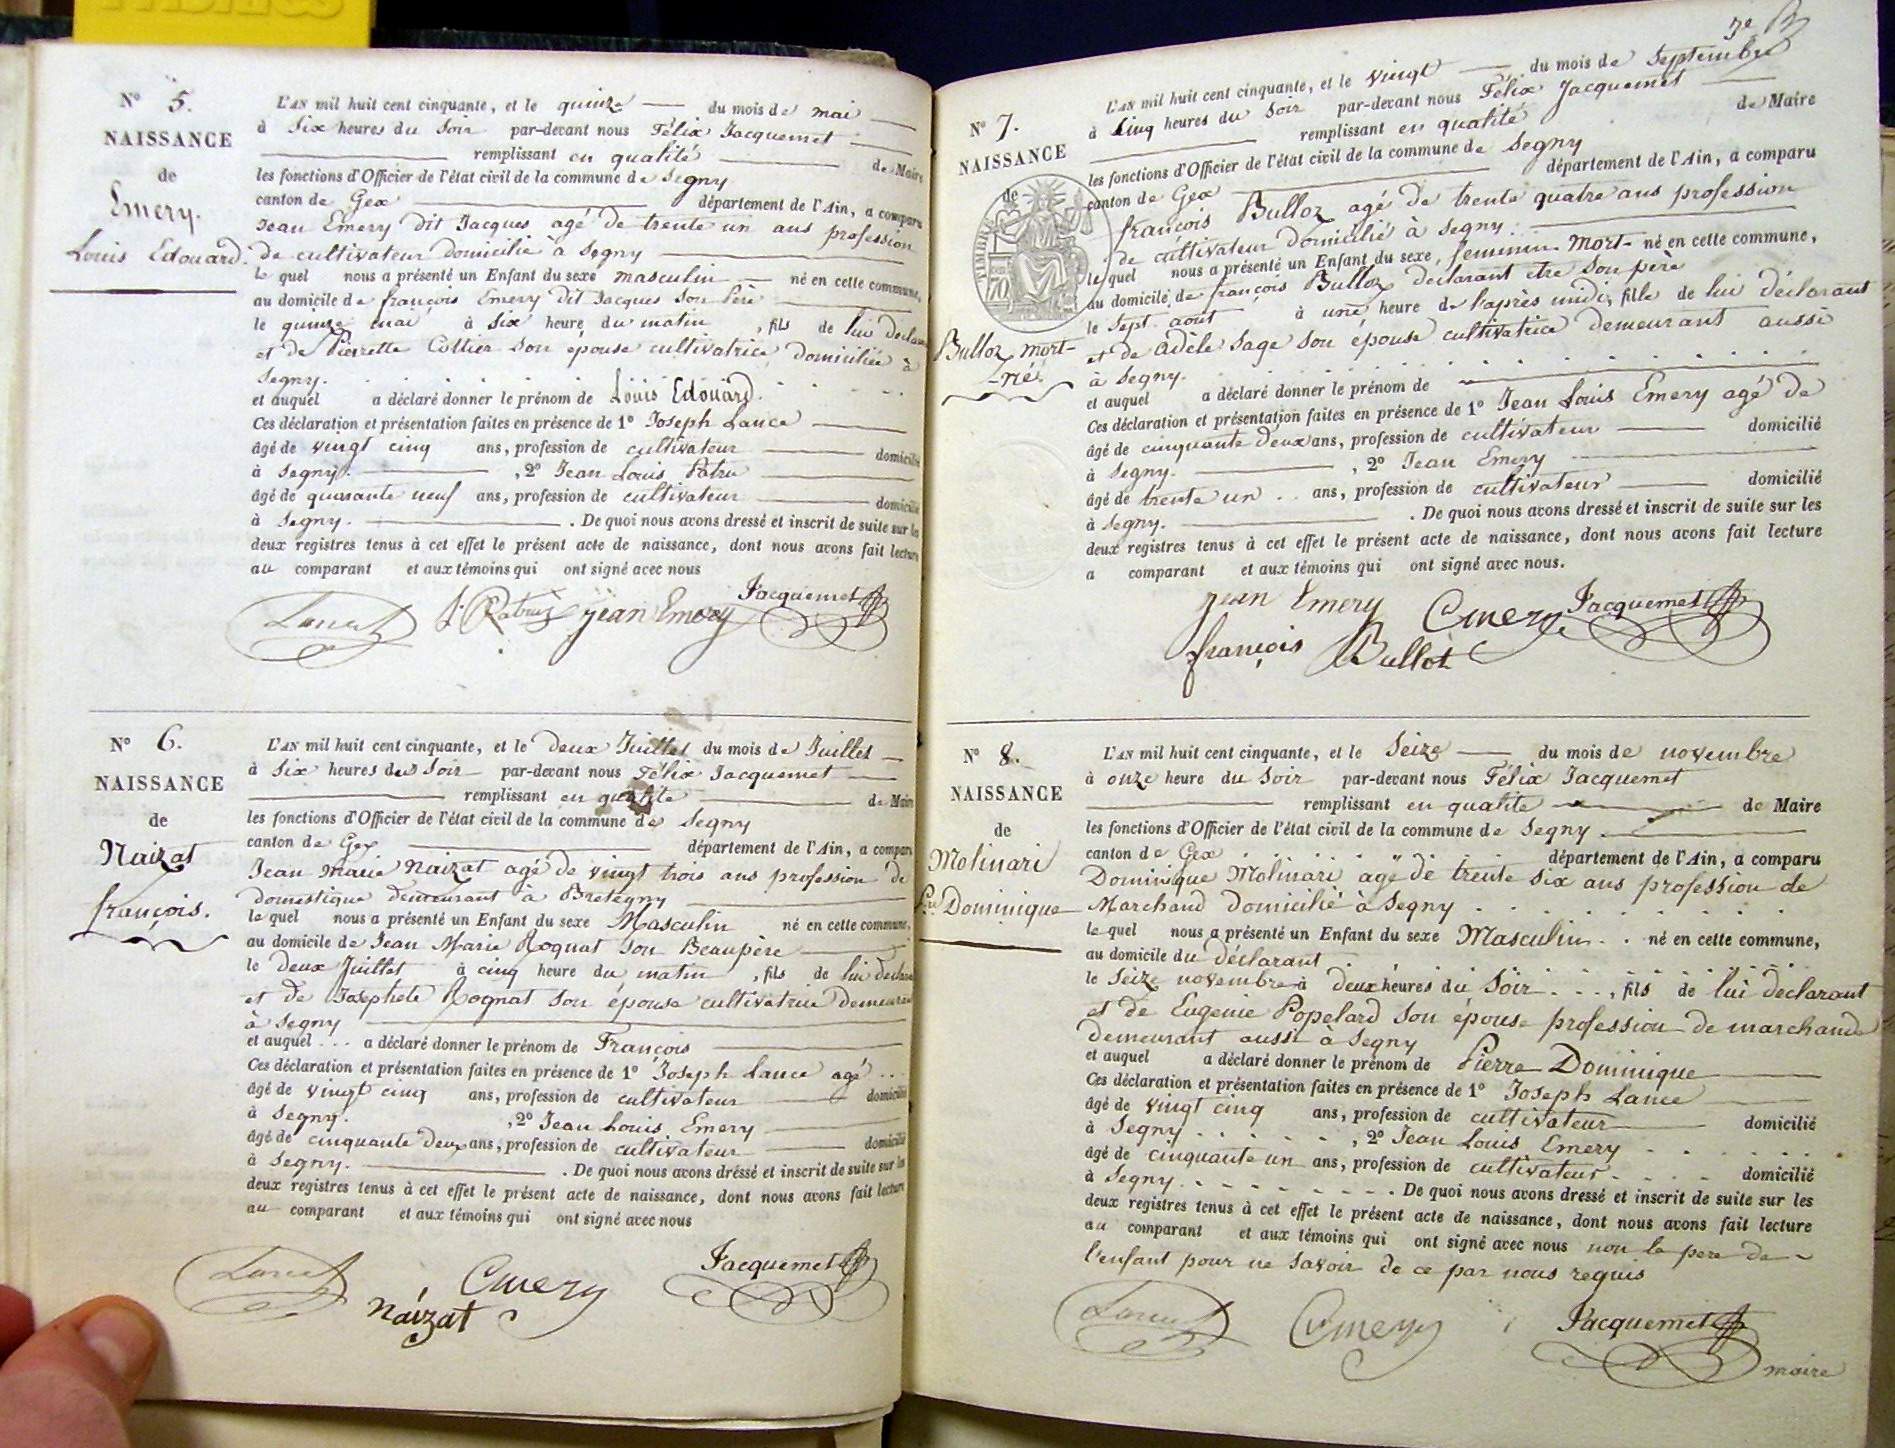 N° 5.
NAISSANCE
de
Emery.
Louis Edouard.
L'AN mil huit cent cinquante, et le quinze du mois de mai
à Six heures du Soir par-devant nous Félix Jacquemet
remplissant en qualité de Maire
les fonctions d'Officier de l'état civil de la commune de Segny
canton de Gex département de l'Ain, a comparu
Jean Emery dit Jacques agé de trente un ans profession
de cultivateur domicilié à Segny
le quel nous a présenté un Enfant du sexe masculin né en cette commune,
au domicile de françois Emery dit Jacques Son Père
le quinze mai à Six heure du matin, fils de lui déclarant
et de Pierrette Cottier Son épouse cultivatrice domiciliée à
Segny.
et auquel a déclaré donner le prénom de Louis Edouard.
Ces déclaration et présentation faites en présence de 1° Joseph Lance
âgé de vingt cinq ans, profession de cultivateur domicilié
à Segny. , 2° Jean Louis Patru
âgé de quarante neuf ans, profession de cultivateur domicilié
à Segny. . De quoi nous avons dressé et inscrit de suite sur les
deux registres tenus à cet effet le présent acte de naissance, dont nous avons fait lecture
au comparant et aux témoins qui ont signé avec nous
Jacquemet
Lance jean Emery
N° 6.
NAISSANCE
de
Naizat
françois.
L'AN mil huit cent cinquante, et le deux Juillet du mois de Juillet
à Six heures du Soir par-devant nous Félix Jacquemet
remplissant en qualité de Maire
les fonctions d'Officier de l'état civil de la commune de Segny
canton de Gex département de l'Ain, a comparu
Jean Marie Naizat agé de vingt trois ans profession de
domestique demeurant à Bretegny
le quel nous a présenté un Enfant du sexe Masculin né en cette commune,
au domicile de Jean Marie Rognat Son Beaupère
le deux Juillet à cinq heure du matin, fils de lui déclarant
et de Josephete Rognat Son épouse cultivatrice demeurant
à Segny
et auquel ... a déclaré donner le prénom de François
Ces déclaration et présentation faites en présence de 1° Joseph Lance agé ..
âgé de vingt cinq ans, profession de cultivateur domicilié
à Segny. , 2° Jean Louis Emery
âgé de cinquante deux ans, profession de cultivateur domicilié
à Segny. . De quoi nous avons dréssé et inscrit de suite sur les
deux registres tenus à cet effet le présent acte de naissance, dont nous avons fait lecture
au comparant et aux témoins qui ont signé avec nous
Lance Emery Jacquemet
Naizat
N° 7.
NAISSANCE
de
TIMBRE
70
Bulloz mort-
-né.
L'AN mil huit cent cinquante, et le vingt du mois de Septembre
à Cinq heures du Soir par-devant nous Félix Jacquemet
remplissant en qualité de Maire
les fonctions d'Officier de l'état civil de la commune de Segny
canton de Gex département de l'Ain, a comparu
françois Bulloz agé de trente quatre ans profession
de cultivateur Domicilié à Segny.
le quel nous a présenté un Enfant du sexe, feminin mort- né en cette commune,
au domicile de françois Bulloz déclarant etre Son père
le Sept. aout à une heure de l'après midi, fille de lui déclarant
et de adèle Sage Son épouse cultivatrice demeurant aussi
à Segny.
et auquel a déclaré donner le prénom de
Ces déclaration et présentation faites en présence de 1° Jean Louis Emery agé de
âgé de cinquante deux ans, profession de cultivateur domicilié
à Segny. , 2° Jean Emery
âgé de trente un .. ans, profession de cultivateur domicilié
à Segny. . De quoi nous avons dressé et inscrit de suite sur les
deux registres tenus à cet effet le présent acte de naissance, dont nous avons fait lecture
a comparant et aux témoins qui ont signé avec nous.
jean Emery Emery Jacquemet
françois Bulloz
N° 8.
NAISSANCE
de
Molinari
Dominique
L'AN mil huit cent cinquante, et le Seize du mois de novembre
à onze heure du Soir par-devant nous Félix Jacquemet
remplissant en qualité de Maire
les fonctions d'Officier de l'état civil de la commune de Segny.
canton de Gex département de l'Ain, a comparu
Dominique Molinari agé de trente six ans profession de
Marchand Domicilié à Segny
le quel nous a présenté un Enfant du sexe Masculin.. né en cette commune,
au domicile du déclarant
le Seize novembre à deux heures du Soir..., fils de lui déclarant
et de Eugenie Popelard Son épouse profession de marchande
demeurant aussi à Segny
et auquel a déclaré donner le prénom de Pierre Dominique
Ces déclaration et présentation faites en présence de 1° Joseph Lance
âgé de vingt cinq ans, profession de cultivateur domicilié
à Segny. , 2° Jean Louis Emery
âgé de cinquante un ans, profession de cultivateur domicilié
à Segny. . De quoi nous avons dressé et inscrit de suite sur les
deux registres tenus à cet effet le présent acte de naissance, dont nous avons fait lecture
au comparant et aux témoins qui ont signé avec nous non le pere de
l'enfant pour ne Savoir de ce par nous requis
Lance Emery Jacquemet
maire